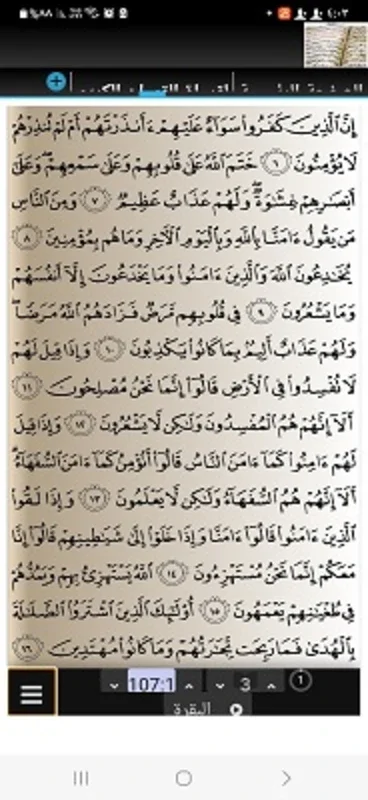 ٤:٠٢
٪٨٨
إِنَّ ٱلَّذِينَ كَفَرُوا۟ سَوَآءٌ عَلَيْهِمْ ءَأَنذَرْتَهُمْ أَمْ لَمْ تُنذِرْهُمْ
لَا يُؤْمِنُونَ ٦ خَتَمَ ٱللَّهُ عَلَىٰ قُلُوبِهِمْ وَعَلَىٰ سَمْعِهِمْ ۖ وَعَلَىٰٓ
أَبْصَٰرِهِمْ غِشَٰوَةٌ ۖ وَلَهُمْ عَذَابٌ عَظِيمٌ ٧ وَمِنَ ٱلنَّاسِ
مَن يَقُولُ ءَامَنَّا بِٱللَّهِ وَبِٱلْيَوْمِ ٱلْءَاخِرِ وَمَا هُم بِمُؤْمِنِينَ ٨
يُخَٰدِعُونَ ٱللَّهَ وَٱلَّذِينَ ءَامَنُوا۟ وَمَا يَخْدَعُونَ إِلَّآ أَنفُسَهُمْ
وَمَا يَشْعُرُونَ ٩ فِى قُلُوبِهِم مَّرَضٌ فَزَادَهُمُ ٱللَّهُ مَرَضًا ۖ
وَلَهُمْ عَذَابٌ أَلِيمٌۢ بِمَا كَانُوا۟ يَكْذِبُونَ ١٠ وَإِذَا قِيلَ لَهُمْ
لَا تُفْسِدُوا۟ فِى ٱلْأَرْضِ قَالُوٓا۟ إِنَّمَا نَحْنُ مُصْلِحُونَ ١١
أَلَآ إِنَّهُمْ هُمُ ٱلْمُفْسِدُونَ وَلَٰكِن لَّا يَشْعُرُونَ ١٢ وَإِذَا قِيلَ
لَهُمْ ءَامِنُوا۟ كَمَآ ءَامَنَ ٱلنَّاسُ قَالُوٓا۟ أَنُؤْمِنُ كَمَآ ءَامَنَ ٱلسُّفَهَآءُ ۗ
أَلَآ إِنَّهُمْ هُمُ ٱلسُّفَهَآءُ وَلَٰكِن لَّا يَعْلَمُونَ ١٣ وَإِذَا لَقُوا۟
ٱلَّذِينَ ءَامَنُوا۟ قَالُوٓا۟ ءَامَنَّا وَإِذَا خَلَوْا۟ إِلَىٰ شَيَٰطِينِهِمْ قَالُوٓا۟ إِنَّا
مَعَكُمْ إِنَّمَا نَحْنُ مُسْتَهْزِءُونَ ١٤ ٱللَّهُ يَسْتَهْزِئُ بِهِمْ وَيَمُدُّهُمْ
فِى طُغْيَٰنِهِمْ يَعْمَهُونَ ١٥ أُو۟لَٰٓئِكَ ٱلَّذِينَ ٱشْتَرَوُا۟ ٱلضَّلَٰلَةَ
بِٱلْهُدَىٰ فَمَا رَبِحَت تِّجَٰرَتُهُمْ وَمَا كَانُوا۟ مُهْتَدِينَ ١٦
107:1 3 1
البقرة